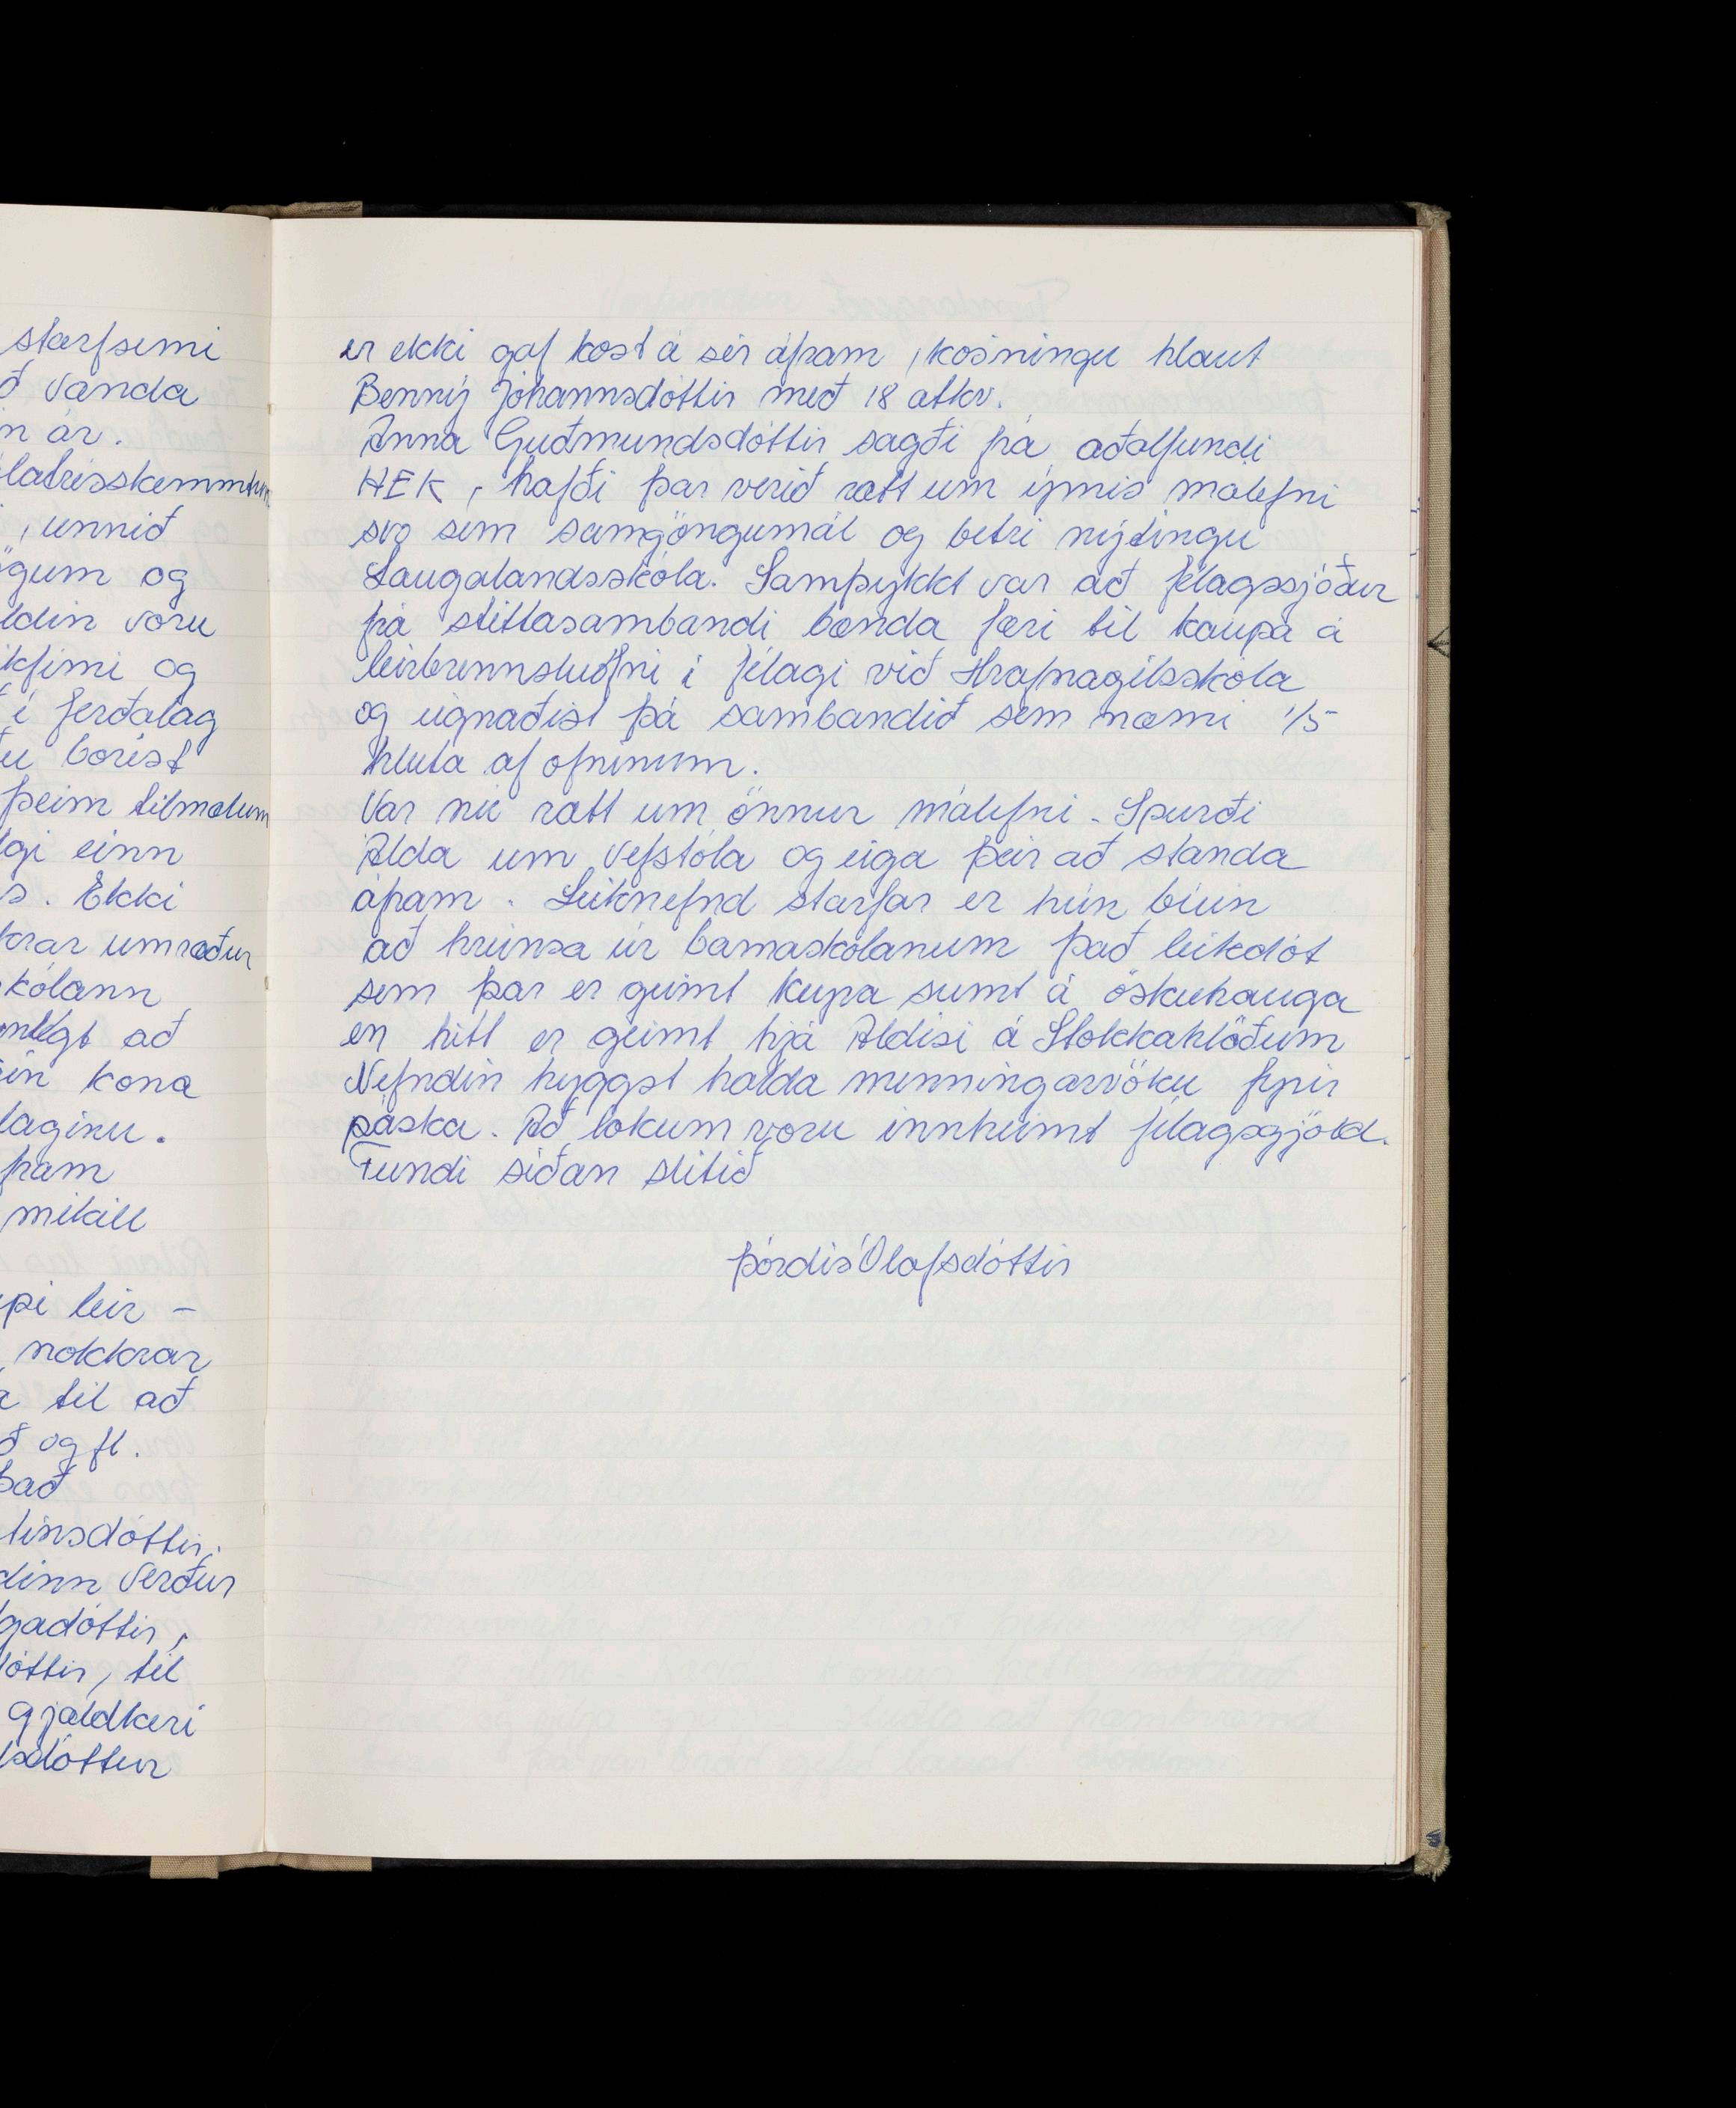 starfsemi
ð vanda
n ár.
látrisskemmtun
, unnið
ögum og
ldin voru
ikfimi og
í ferðalag
u borist
þeim tilmælum
lgi einn
s. Ekki
krar umræður
kólann
nlegt að
ein kona
laginu.
fram
mikill
upi leir -
nokkrar
a til að
ð og fl.
það
tinsdóttir,
dinn verður
gadóttir,
dóttir, til
gjaldkeri
sdóttur
er ekki gaf kost á sér áfram, kosningu hlaut
Benný Jóhannsdóttir með 18 atkv.
Anna Guðmundsdóttir sagði frá aðalfundi
HEK, hafði þar verið rætt um ýmis málefni
svo sem samgöngumál og betri nýtingu
Laugalandsskóla. Samþykkt var að félagssjóður
frá stéttasambandi bænda færi til kaupa á
leirbrennsluofni í félagi við Hrafnagilsskóla
og eignaðist þá sambandið sem næmi 1/5
hluta af ofninum.
Var nú rætt um önnur málefni. Spurði
Alda um vefstóla og eiga þeir að standa
áfram. Leiknefnd starfar er hún búin
að hreinsa úr barnaskólanum það leikdót
sem þar er geimt keyra sumt á öskuhauga
en hitt er geimt hjá Aldísi á Stokkahlöðum
Nefndin hyggst halda menningarvöku fyrir
páska. Að lokum voru innheimt félagsgjöld.
Fundi síðan slitið
Þórdís Ólafsdóttir